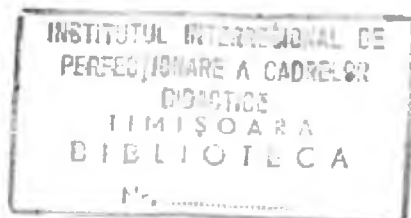 INSTITUTUL INTERREGIONAL DE
PERFECȚIONARE A CADRELOR
DIDACTICE
TIMIȘOARA
BIBLIOTECA
Nr. ....................